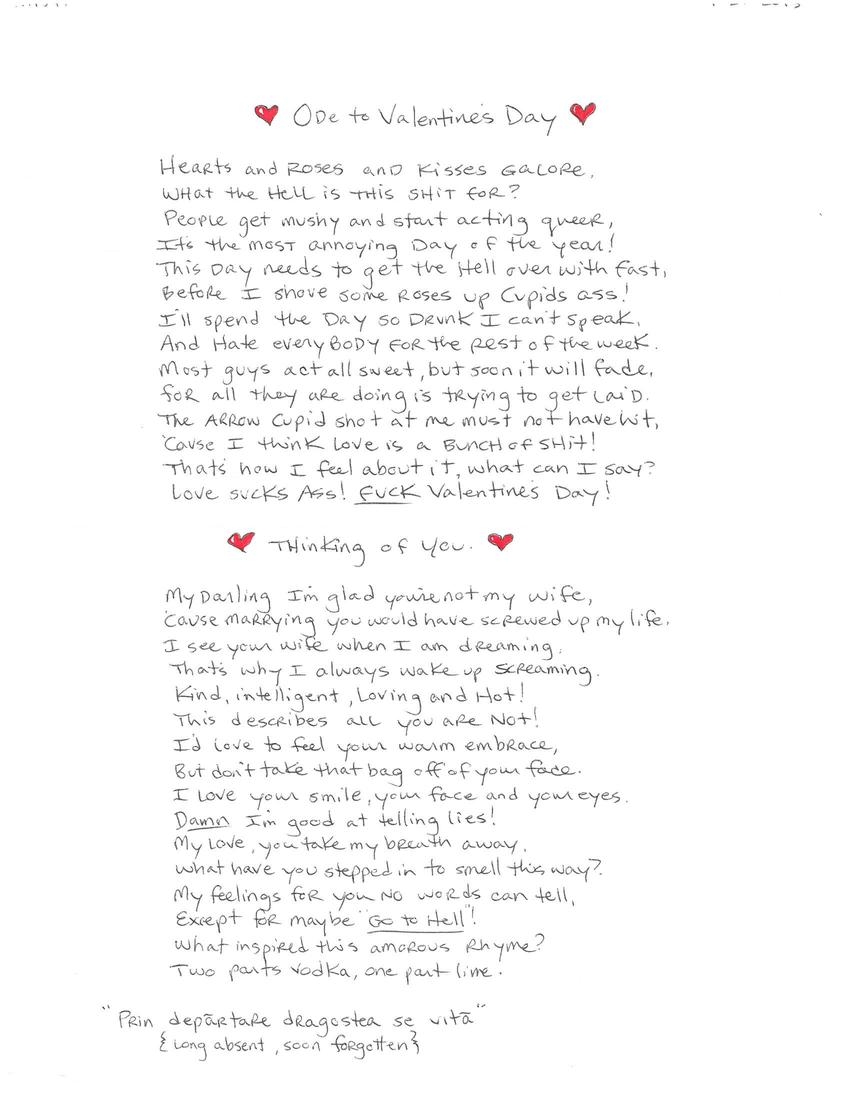 Ode to Valentine's Day
Hearts and Roses and Kisses Galore,
What the Hell is this shit for?
People get mushy and start acting queer,
It's the most annoying Day of the year!
This Day needs to get the Hell over with fast,
Before I shove some Roses up Cupids ass!
I'll spend the Day so Drunk I can't speak,
And Hate everyBODY for the Rest of the week.
Most guys act all sweet, but soon it will fade,
for all they are doing is trying to get laid.
The Arrow Cupid shot at me must not have hit,
'Cause I think Love is a Bunch of shit!
Thats how I feel about it, what can I say?
Love sucks Ass! FUCK Valentine's Day!
Thinking of you.
My Darling I'm glad you're not my wife,
'Cause marrying you would have screwed up my life.
I see your wife when I am dreaming.
That's why I always wake up screaming.
Kind, intelligent, Loving and Hot!
This describes all you are Not!
I'd love to feel your warm embrace,
But don't take that bag off of your face.
I love your smile, your face and your eyes.
Damn I'm good at telling lies!
My Love, you take my breath away.
What have you stepped in to smell this way?
My feelings for you no words can tell,
Except for maybe "Go to Hell"!
What inspired this amorous Rhyme?
Two parts Vodka, one part lime.
"Prin depărtare dragostea se vită"
{Long absent, soon forgotten}